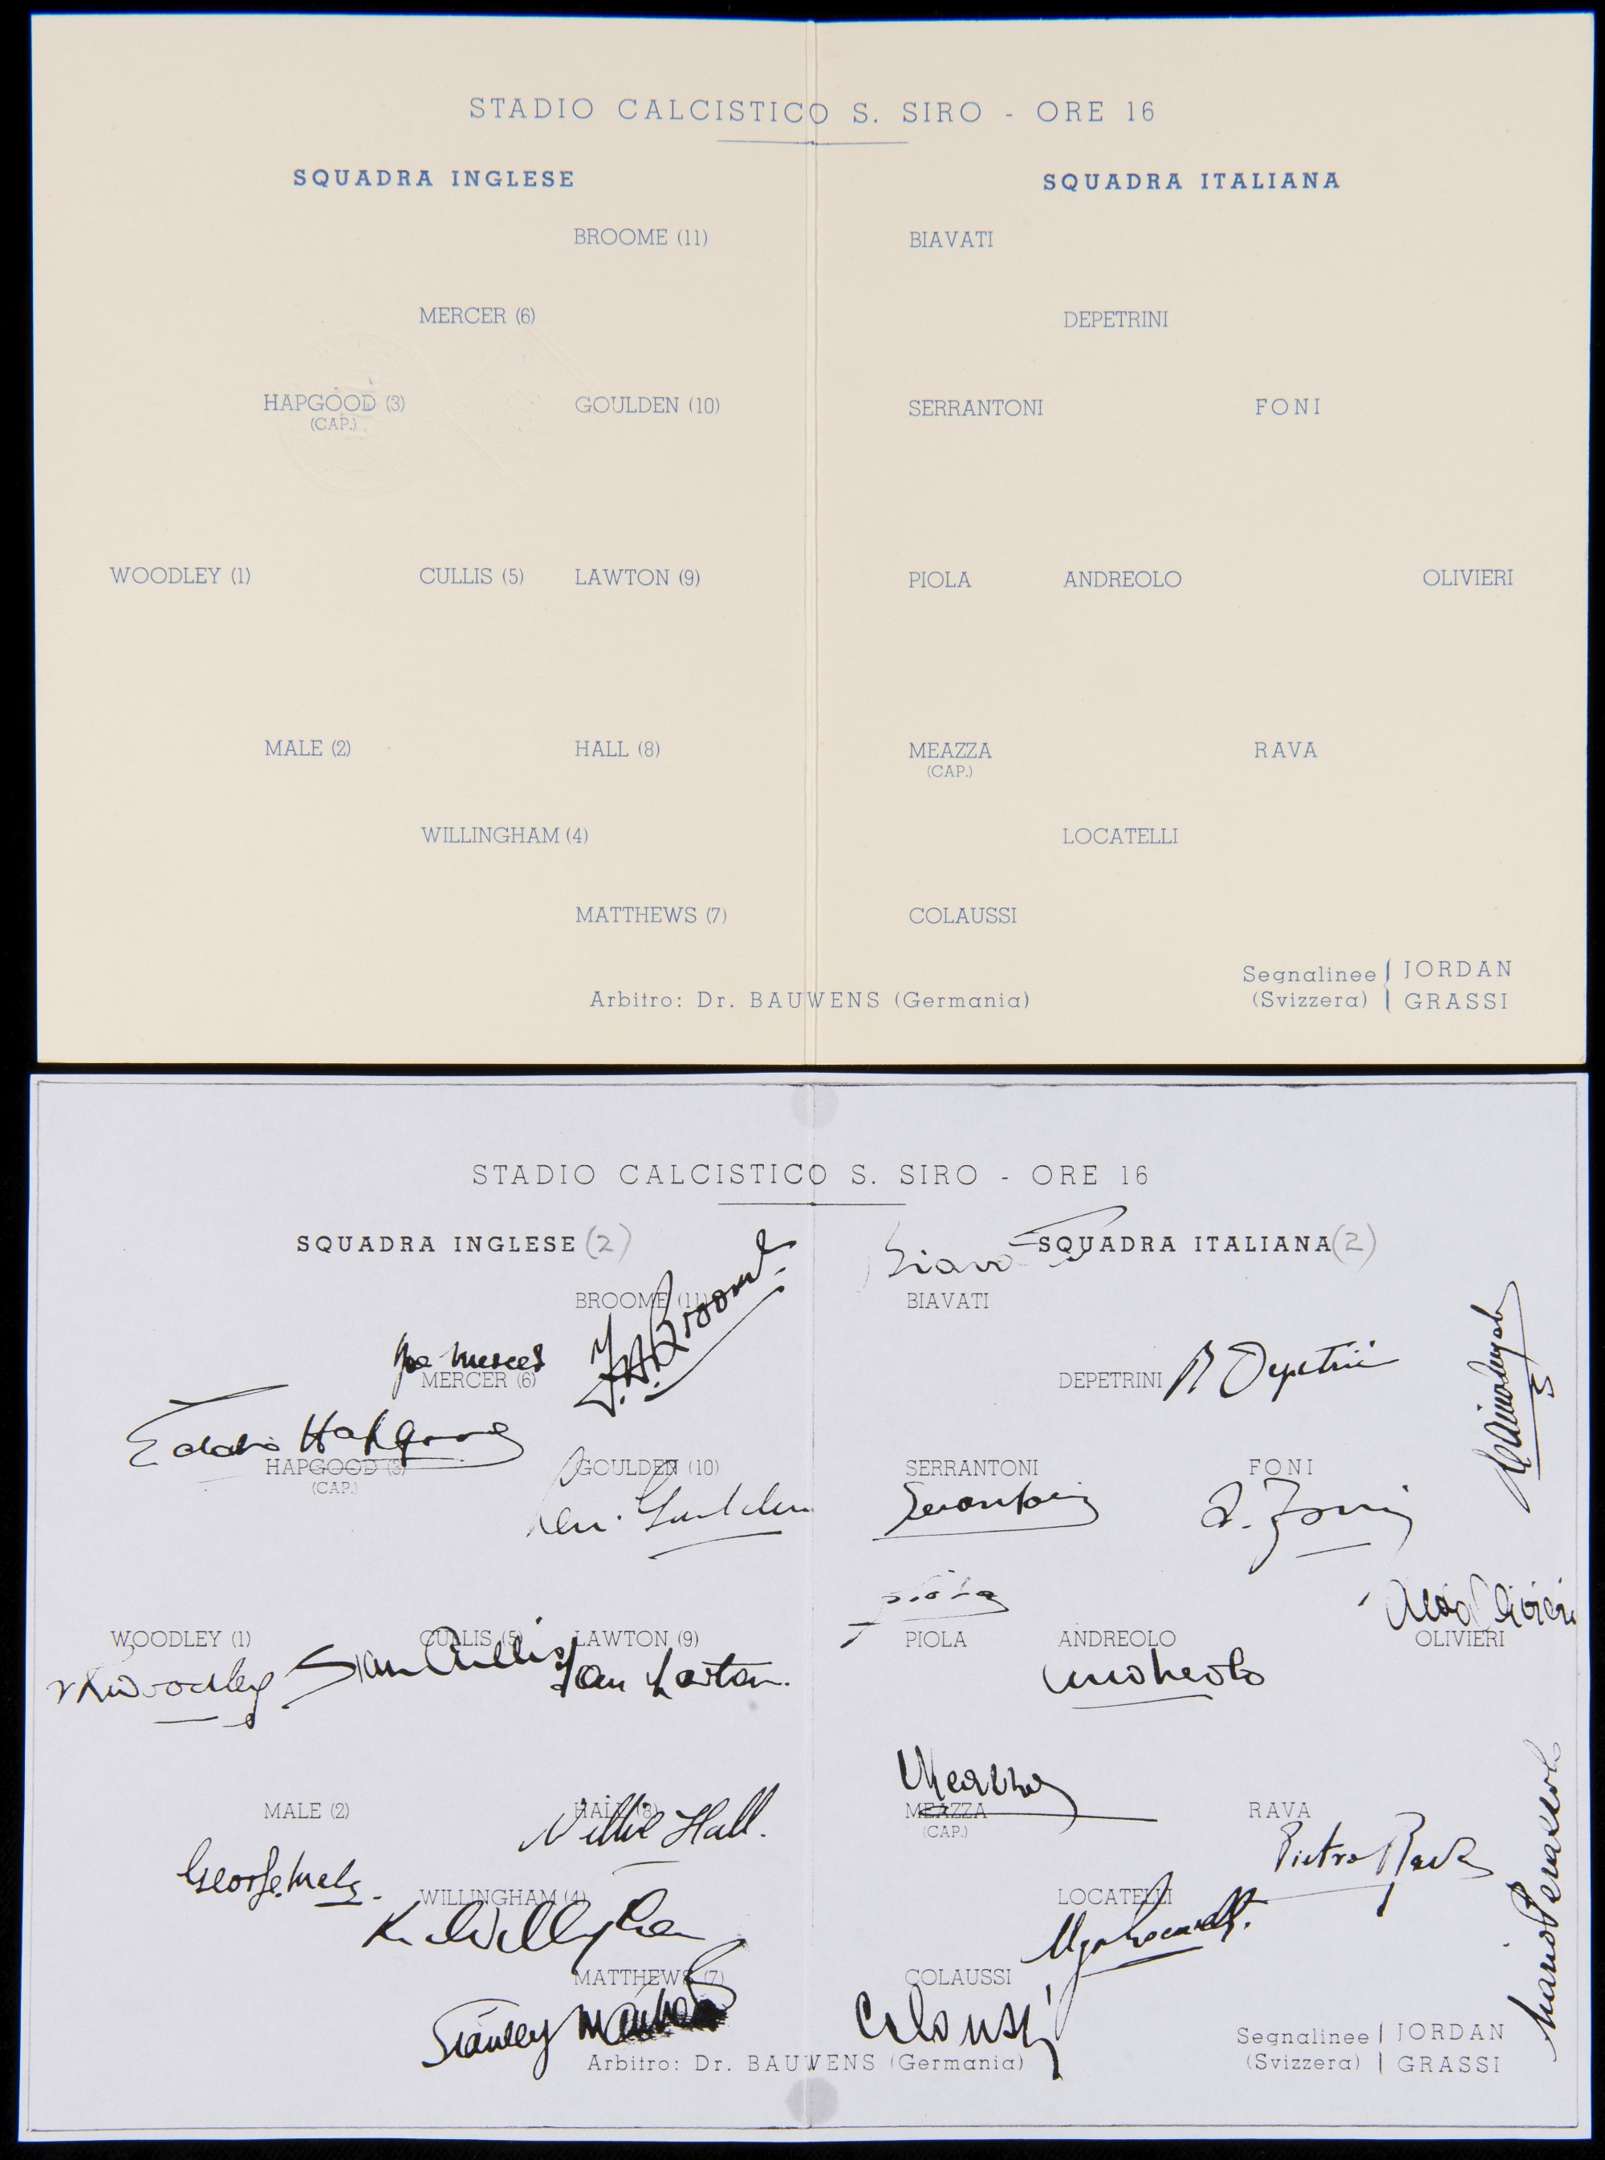 STADIO CALCISTICO S. SIRO - ORE 16
SQUADRA INGLESE
SQUADRA ITALIANA
BROOME (11)
BIAVATI
MERCER (6)
DEPETRINI
HAPGOOD (3)
(CAP.)
GOULDEN (10)
SERRANTONI
FONI
WOODLEY (1)
CULLIS (5)
LAWTON (9)
PIOLA
ANDREOLO
OLIVIERI
MALE (2)
HALL (8)
MEAZZA
(CAP.)
RAVA
WILLINGHAM (4)
LOCATELLI
MATTHEWS (7)
COLAUSSI
Arbitro: Dr. BAUWENS (Germania)
Segnalinee
(Svizzera)
JORDAN
GRASSI
STADIO CALCISTICO S. SIRO - ORE 16
SQUADRA INGLESE (2)
SQUADRA ITALIANA (2)
BROOME (11)
F.A. Broome
BIAVATI
Joe Mercer
MERCER (6)
DEPETRINI
Depetrini
Eddie Hapgood
HAPGOOD (3)
(CAP.)
GOULDEN (10)
Len. Goulden
SERRANTONI
Serantoni
FONI
A. Foni
Piola
Aldo Olivieri
WOODLEY (1)
CULLIS (5)
LAWTON (9)
PIOLA
ANDREOLO
OLIVIERI
Woodley
Stan Cullis
Tom Lawton.
Andreolo
Meazza
MALE (2)
HALL (8)
MEAZZA
(CAP.)
RAVA
Willie Hall.
Pietro Rava
George Male.
WILLINGHAM (4)
LOCATELLI
K. Willingham
Ugo Locatelli.
MATTHEWS (7)
COLAUSSI
Stanley Matthews
Colaussi
Mario Perazzolo
Arbitro: Dr. BAUWENS (Germania)
Segnalinee
(Svizzera)
JORDAN
GRASSI